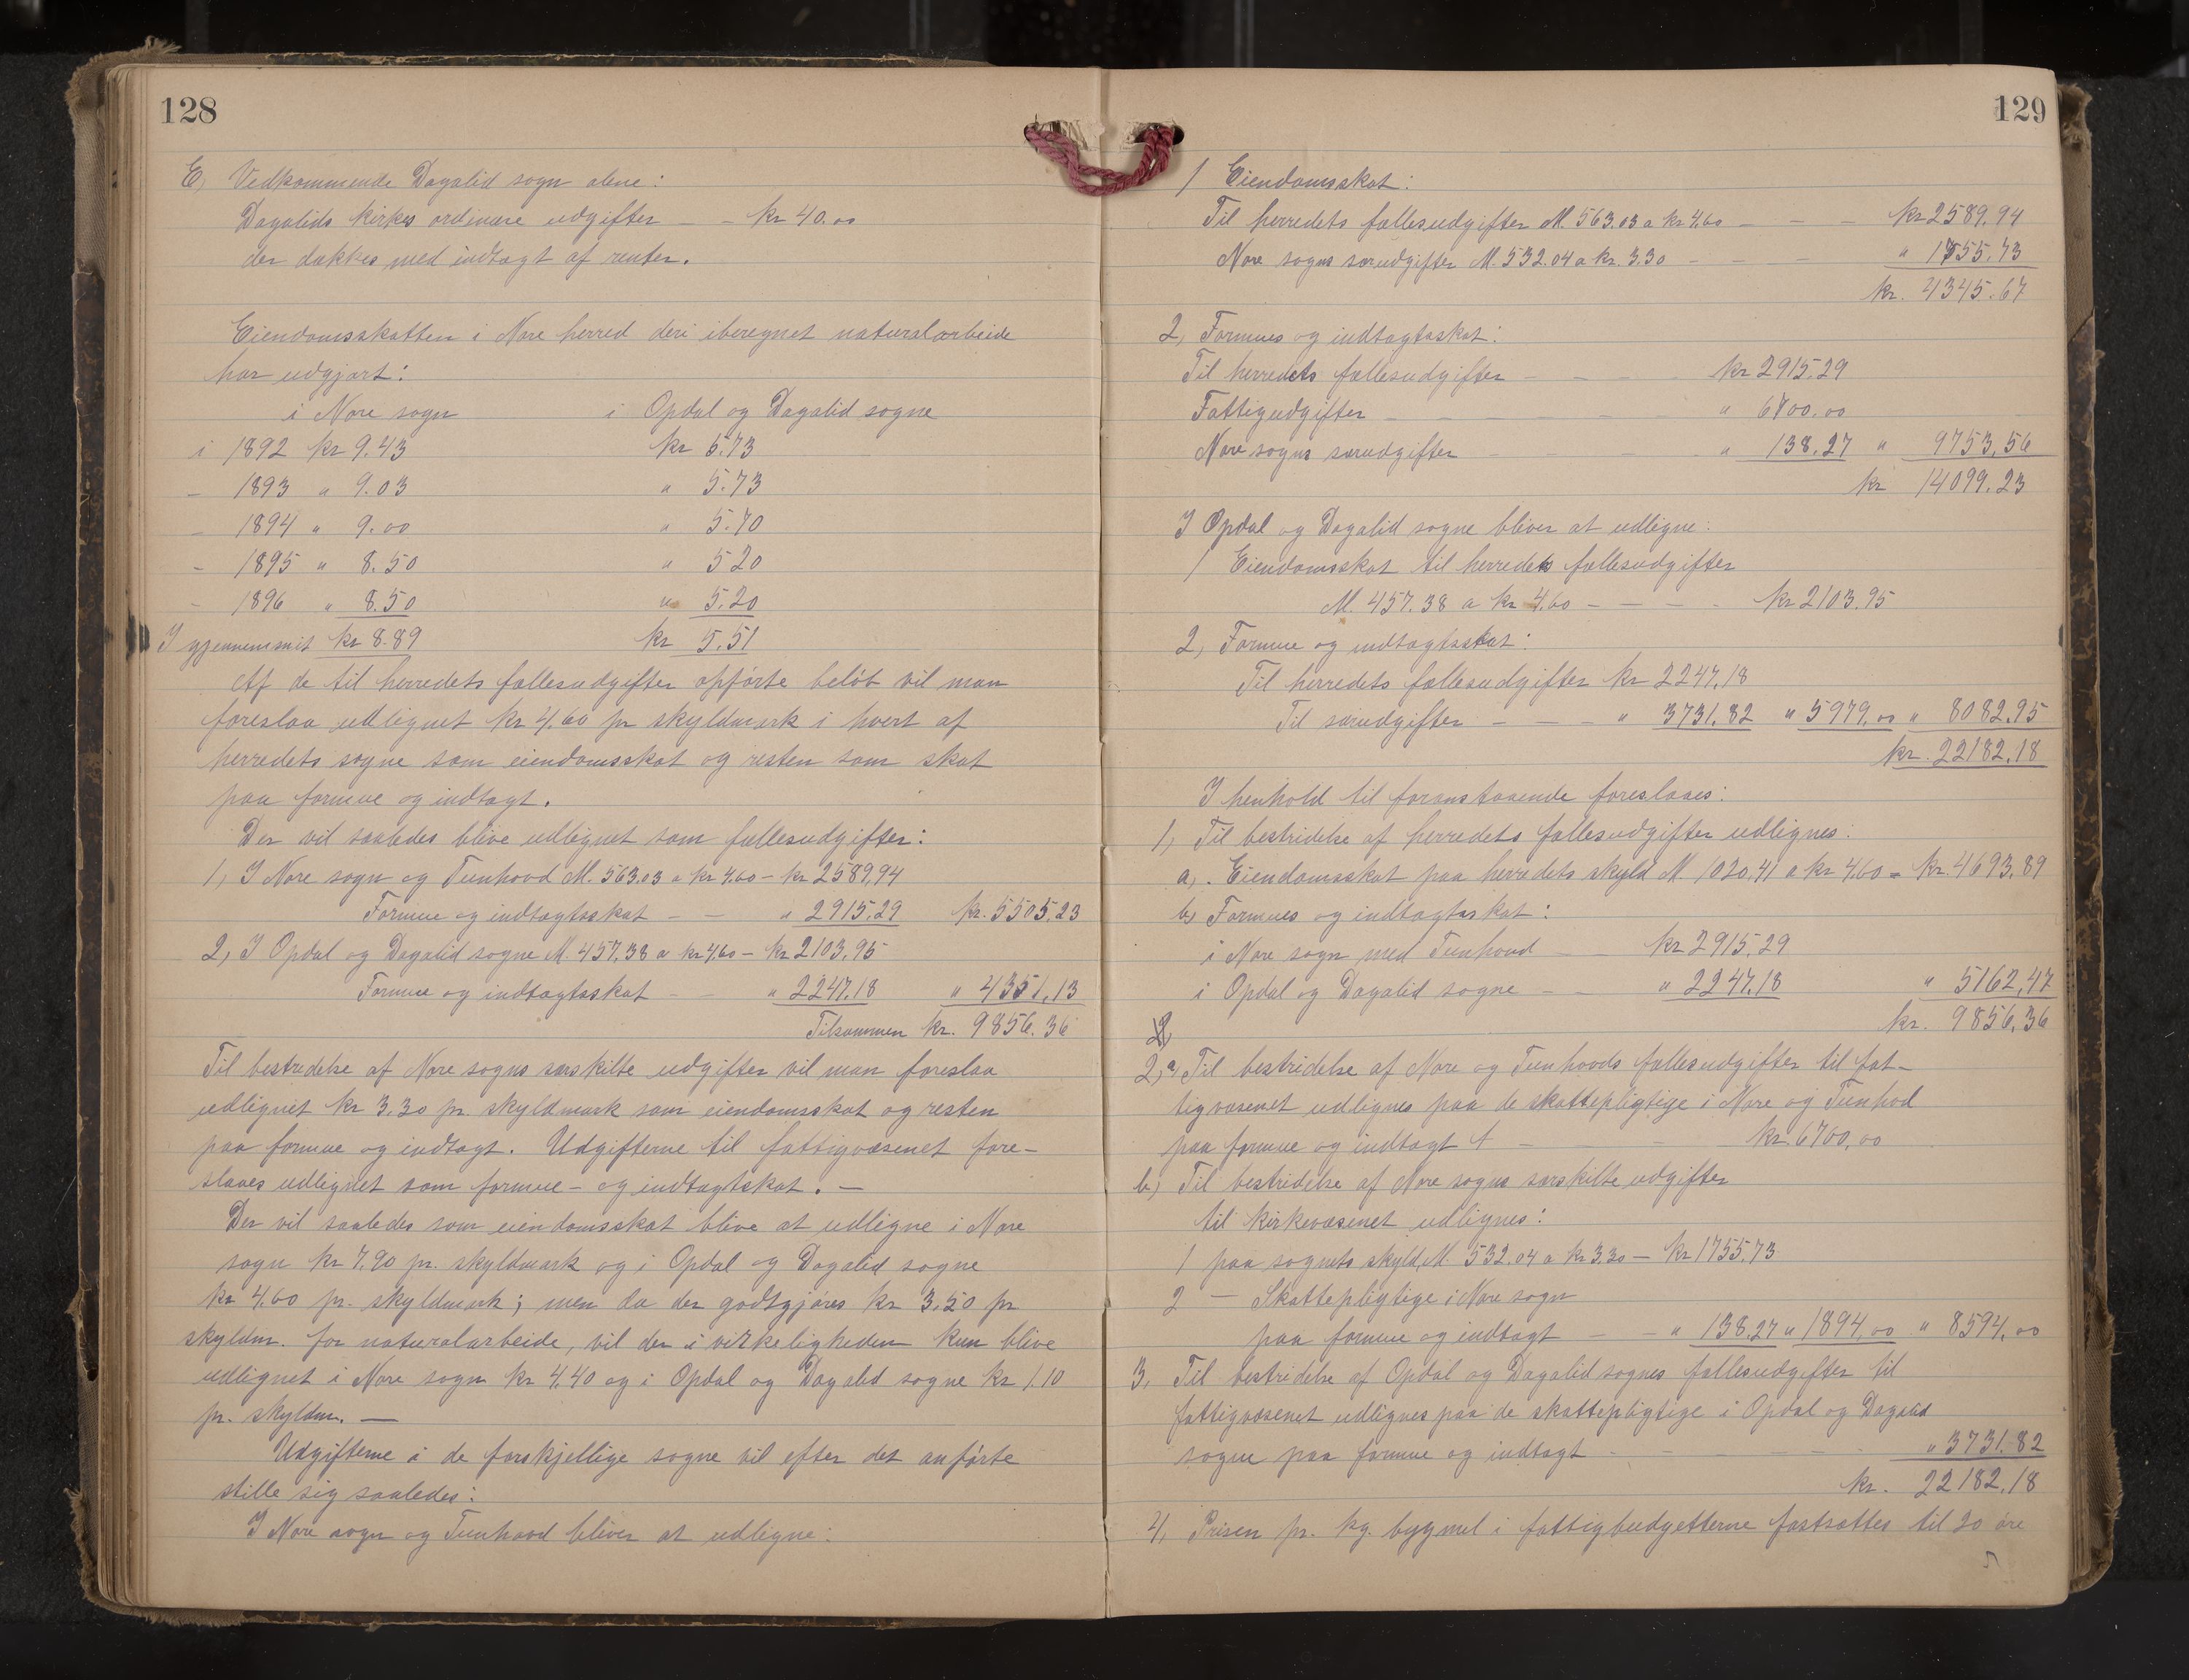 128
E, Vedkommende Dagalid sogn alene:
Dagalids kirkes ordinære udgifter — – kr 40.00
der dækkes med indtægt af renter.
Eiendomsskatten i Nore herred deri iberegnet naturalarbeide
har udgjort:
i Nore sogn i Opdal og Dagalid sogne
i 1892 kr 9.43 kr 5.73
– 1893 " 9.03 " 5.73
– 1894 " 9.00 " 5.70
– 1895 " 8.50 " 5 20
– 1896 " 8.50 " 5.20
I gjennemsnit kr 8.89 kr 5.51
Af de til herredets fællesudgifter opførte beløb vil man
foreslaa udlignet kr 4.60 pr skyldmark i hvert af
herredets sogne som eiendomsskat og resten som skat
paa formue og indtægt.
Der vil saaledes blive udlignet som fællesudgifter:
1, I Nore sogn og Tunhovd M. 563.03 a kr 4.60 – kr 2589,94
Formue og indtægtsskat – – " 2915,29 kr. 5505,23
2, I Opdal og Dagalid sogne M. 457,38 a kr 4,60 – kr 2103,95
Formue og indtægtsskat – – " 2247,18 " 4351,13
Tilsammen kr. 9856.36
Til bestridelse af Nore sogns særskilte udgifter vil man foreslaa
udlignet kr 3.30 pr. skyldmark som eiendomsskat og resten
paa formue og indtægt. Udgifterne til fattigvæsenet fore-
slaaes udlignet som formue- og indtægtskat. —
Der vil saaledes som eiendomsskat blive at udligne i Nore
sogn kr 7,90 pr. skyldmark og i Opdal og Dagalid sogne
kr 4,60 pr. skyldmark; men da der godtgjøres kr 3,50 pr
skyldm. for naturalarbeide, vil der i virkeligheden kun blive
udlignet i Nore sogn kr 4,40 og i Opdal og Dagalid sogne kr 1.10
pr. skyldm. —
Udgifterne i de forskjellige sogne vil efter det anførte
stille sig saaledes:
I Nore sogn og Tunhovd bliver at udligne:
129
1 Eiendomsskat:
Til herredets fællesudgifter M. 563.03 a kr 4.60 – – – kr 2589.94
Nore sogns særudgifter M. 532.04 a kr. 3.30 – – – " 1755.73
kr. 4345.67
2, Formues og indtægtsskat:
Til herredets fællesudgifter – – kr 2915.29
Fattigudgifter – – – – " 6700.00
Nore sogns særudgifter – – – " 138.27 " 9753,56
kr 14099.23
I Opdal og Dagalid sogne bliver at udligne:
1 Eiendomsskat til herredets fællesudgifter
M. 457.38 a kr 4.60 – – – – kr 2103.95
2, Formue og indtægtsskat:
Til herredets fællesudgifter kr 2247,18
Til særudgifter – – – " 3731.82 " 5979.00 " 8082.95
kr. 22182.18
I henhold til foranstaaende foreslaaes:
1, Til bestridelse af herredets fællesudgifter udlignes:
a, . Eiendomsskat paa herredets skyld M. 1020,41 a kr 4,60 = kr. 4693,89
b, Formues og indtægtsskat:
i Nore sogn med Tunhovd – – kr 2915.29
i Opdal og Dagalid sogne – – " 2247.18 " 5162,47
kr. 9856,36
2,
2,a, Til bestridelse af Nore og Tunhovds fællesudgifter til fat-
tigvæsenet udlignes paa de skattepligtige i Nore og Tunhod
paa formue og indtægt – – kr. 6700,00
b, Til bestridelse af Nore sogns særskilte udgifter
til kirkevæsenet udlignes:
1 paa sognets skyld, M. 532.04 a kr 3,30 — kr 1755.73
2 — Skattepligtige i Nore sogn
paa formue og indtægt – – " 138.27 " 1894,00 " 8594,00
3, Til bestridelse af Opdal og Dagalid sognes fællesudgifter til
fattigvæsenet udlignes paa de skattepligtige i Opdal og Dagalid
sogne paa formue og indtægt – – – – " 3731.82
kr. 22182,18
4, Prisen pr. kg. bygmel i fattigbudgetterne fastsættes til 20 øre